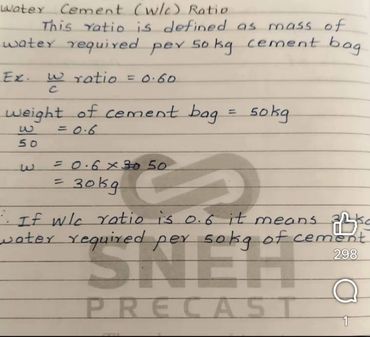 Water Cement (W/c) Ratio
This ratio is defined as mass of
water required per 50kg cement bag
Ex. w/c ratio = 0.60
weight of cement bag = 50kg
w/50 = 0.6
w = 0.6 x 30 50
= 30kg
∴ If W/c ratio is 0.6 it means
water required per 50kg of cement
298
SNEH
PRECAST
1